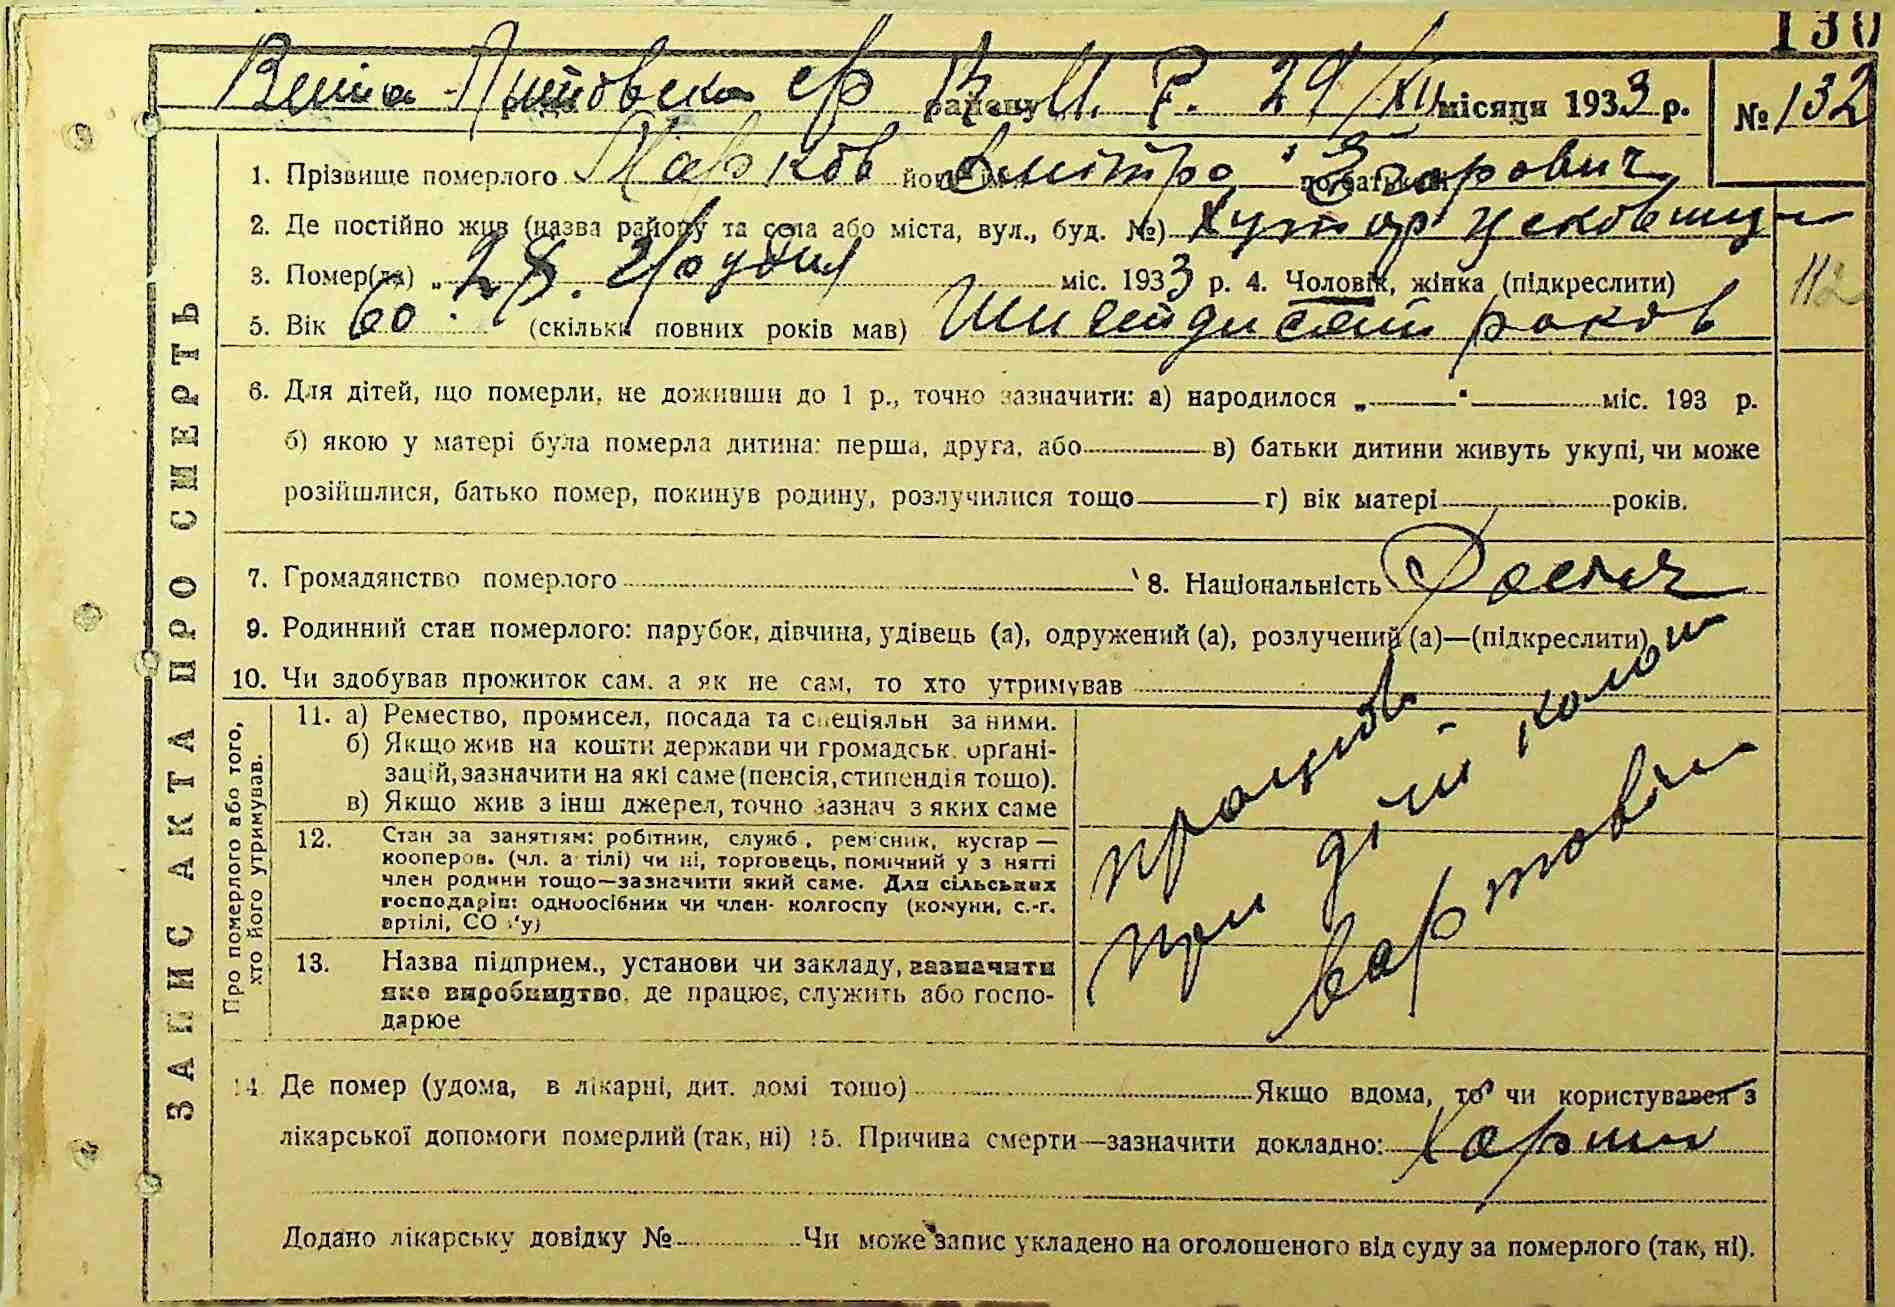 130
рада району 29/XII місяця 1933 р. № 132
ЗАПИС АКТА ПРО СМЕРТЬ
1. Прізвище померлого Марков його ім'я Дмітро по батькові Захарович
2. Де постійно жив (назва району та села або міста, вул., буд. №) Хутор
3. Помер(ла) „28. Грудня міс. 1933 р. 4. Чоловік, жінка (підкреслити)
112
5. Вік 60. (скільки повних років мав) роков
6. Для дітей, що померли, не доживши до 1 р., точно зазначити: а) народилося „ " міс. 193 р.
б) якою у матері була померла дитина: перша, друга, або в) батьки дитини живуть укупі, чи може
розійшлися, батько помер, покинув родину, розлучилися тощо г) вік матері років.
7. Громадянство померлого 8. Національність
9. Родинний стан померлого: парубок, дівчина, удівець (а), одружений (а), розлучений (а)—(підкреслити)
10. Чи здобував прожиток сам, а як не сам, то хто утримував
Про померлого або того, хто його утримував.
11. а) Ремество, промисел, посада та спеціяльн за ними.
б) Якщо жив на кошти держави чи громадськ. органі-
зацій, зазначити на які саме (пенсія, стипендія тощо).
в) Якщо жив з інш джерел, точно зазнач з яких саме
12. Стан за заняттям: робітник, служб., ремісник, кустар —
кооперов. (чл. артілі) чи ні, торговець, помічний у з нятті
член родини тощо—зазначити який саме. Для сільських
господарів: одноосібник чи член- колгоспу (комуни, с.-г.
артілі, СО 'у)
13. Назва підприєм., установи чи закладу, зазначити
яке виробництво, де працює, служить або госпо-
дарює
працював
при
вартовим
14. Де помер (удома, в лікарні, дит. домі тощо) Якщо вдома, то чи користувався з
лікарської допомоги померлий (так, ні) 15. Причина смерти—зазначити докладно:
Додано лікарську довідку № Чи може запис укладено на оголошеного від суду за померлого (так, ні).